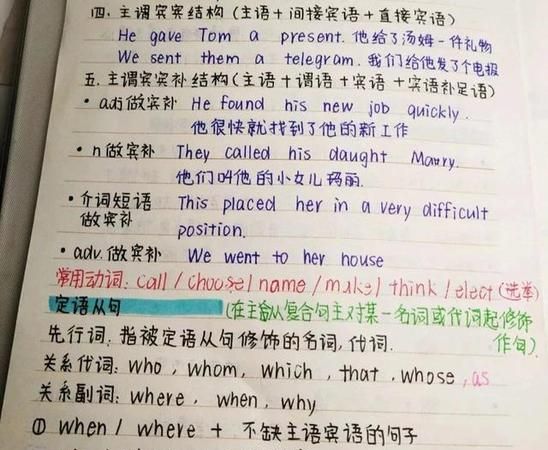 四. 主谓宾宾结构(主语+间接宾语+直接宾语)
He gave Tom a present. 他给了汤姆一件礼物
We sent them a telegram. 我们给他发了个电报
五. 主谓宾宾补结构(主语+谓语+宾语+宾语补足语)
• adj做宾补 He found his new job quickly.
他很快就找到了他的新工作
• n做宾补 They called his daught Maury.
他们叫他的小女儿玛丽.
• 介词短语 This placed her in a very difficult
做宾补 position.
• adv.做宾补 We went to her house
常用动词: call / choose / name / make / think / elect (选举)
定语从句 (在主从复合句主对某一名词或代词起修饰
作句).
先行词: 指被定语从句修饰的名词,代词.
关系代词: who, whom, which, that, whose, as
关系副词: where, when, why
① when / where + 不缺主语宾语的句子